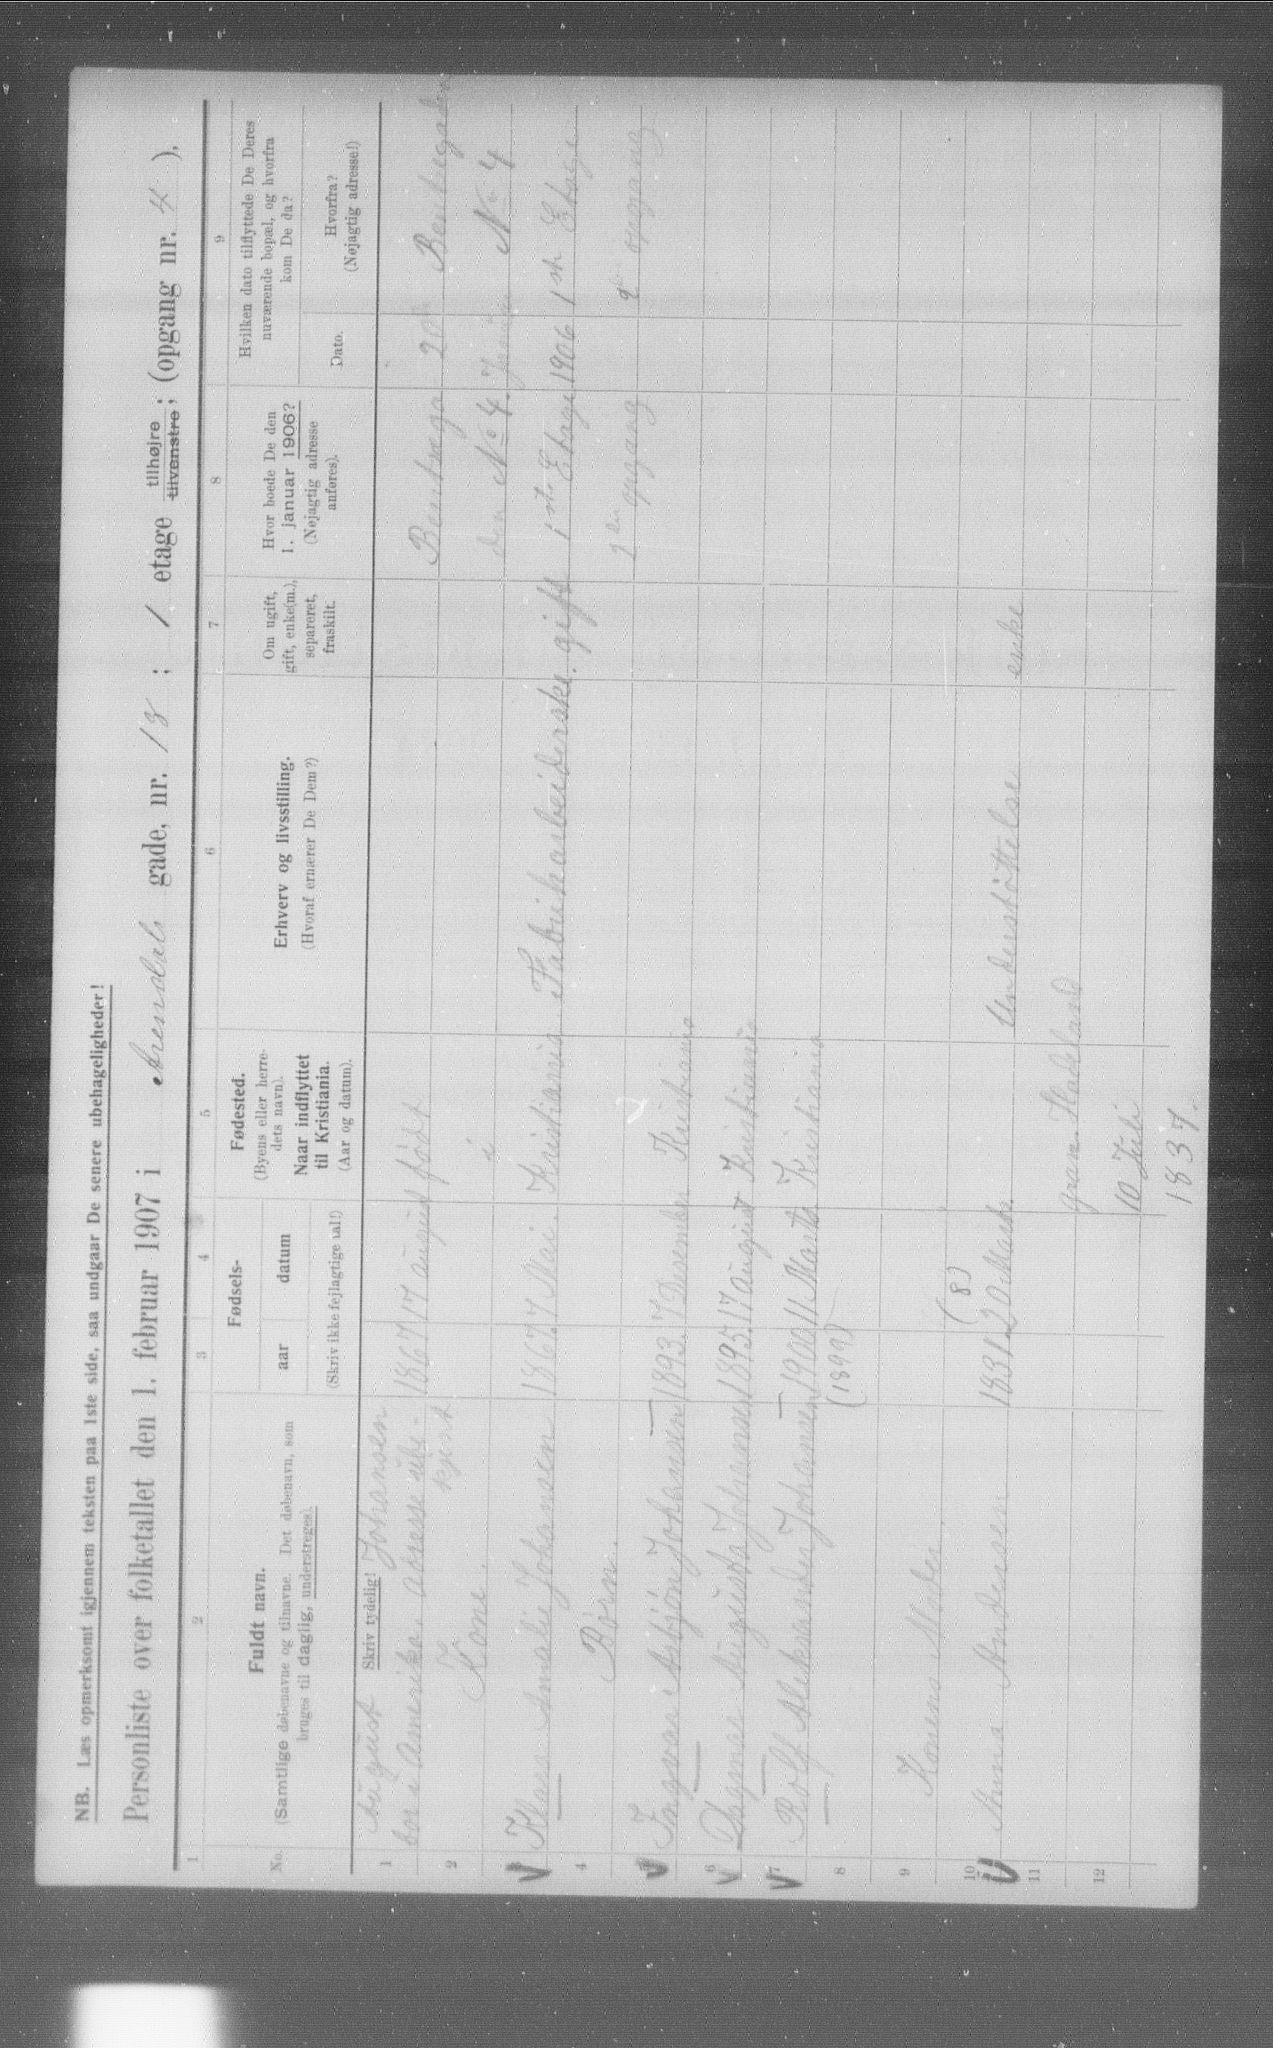 NB. Læs opmerksomt igjennem teksten paa 1ste side, saa undgaar De senere ubehageligheder!
Personliste over folketallet den 1. februar 1907 i Arendals gade, nr. 18 ; 1 etage tilhøjre tilvenstre; (opgang nr. 4 ),
1 2 3 4 5 6 7 8 9
No.
Fuldt navn.
(Samtlige døbenavne og tilnavne. Det døbenavn, som
bruges til daglig, understreges).
Skriv tydelig!
Fødsels-
aar datum
(Skriv ikke fejlagtige tal!)
Fødested.
(Byens eller herre-
dets navn).
Naar indflyttet
til Kristiania.
(Aar og datum).
Erhverv og livsstilling.
(Hvoraf ernærer De Dem?)
Om ugift,
gift, enke(m.),
separeret,
fraskilt.
Hvor boede De den
1. januar 1906?
(Nøjagtig adresse
anføres).
Hvilken dato tilflyttede De Deres
nuværende bopæl, og hvorfra
kom De da?
Dato.
Hvorfra?
(Nøjagtig adresse!)
1 August Johansen
bor i Amerika adresse ube- 1867 17 august født
kjent
i
2 Kone.
3 Klara Amalie Johansen 1867. 7 Mai. Kristiania Fabrikarbeiderske. gift
4 Børn.
5 Ingvar Asbjørn Johansen 1893. 7 Desember Kristiania
6 Dagmar Augusta Johansen 1895. 17 august Kristiania
7 Rolf Aleksander Johansen 1900 11 Marts Kristiania
8 (1899)
9 Konens Moder
(8)
10 Anna Andersen 1831. 20 Marts. Understöttelse enke
11 Gran Hadeland
12 10 Juli
1837.
Bentsega
den No 4.
1ste Etage
opgang
20de
Januar
1906
Bentsegaden
No 4
1ste Etage
opgang